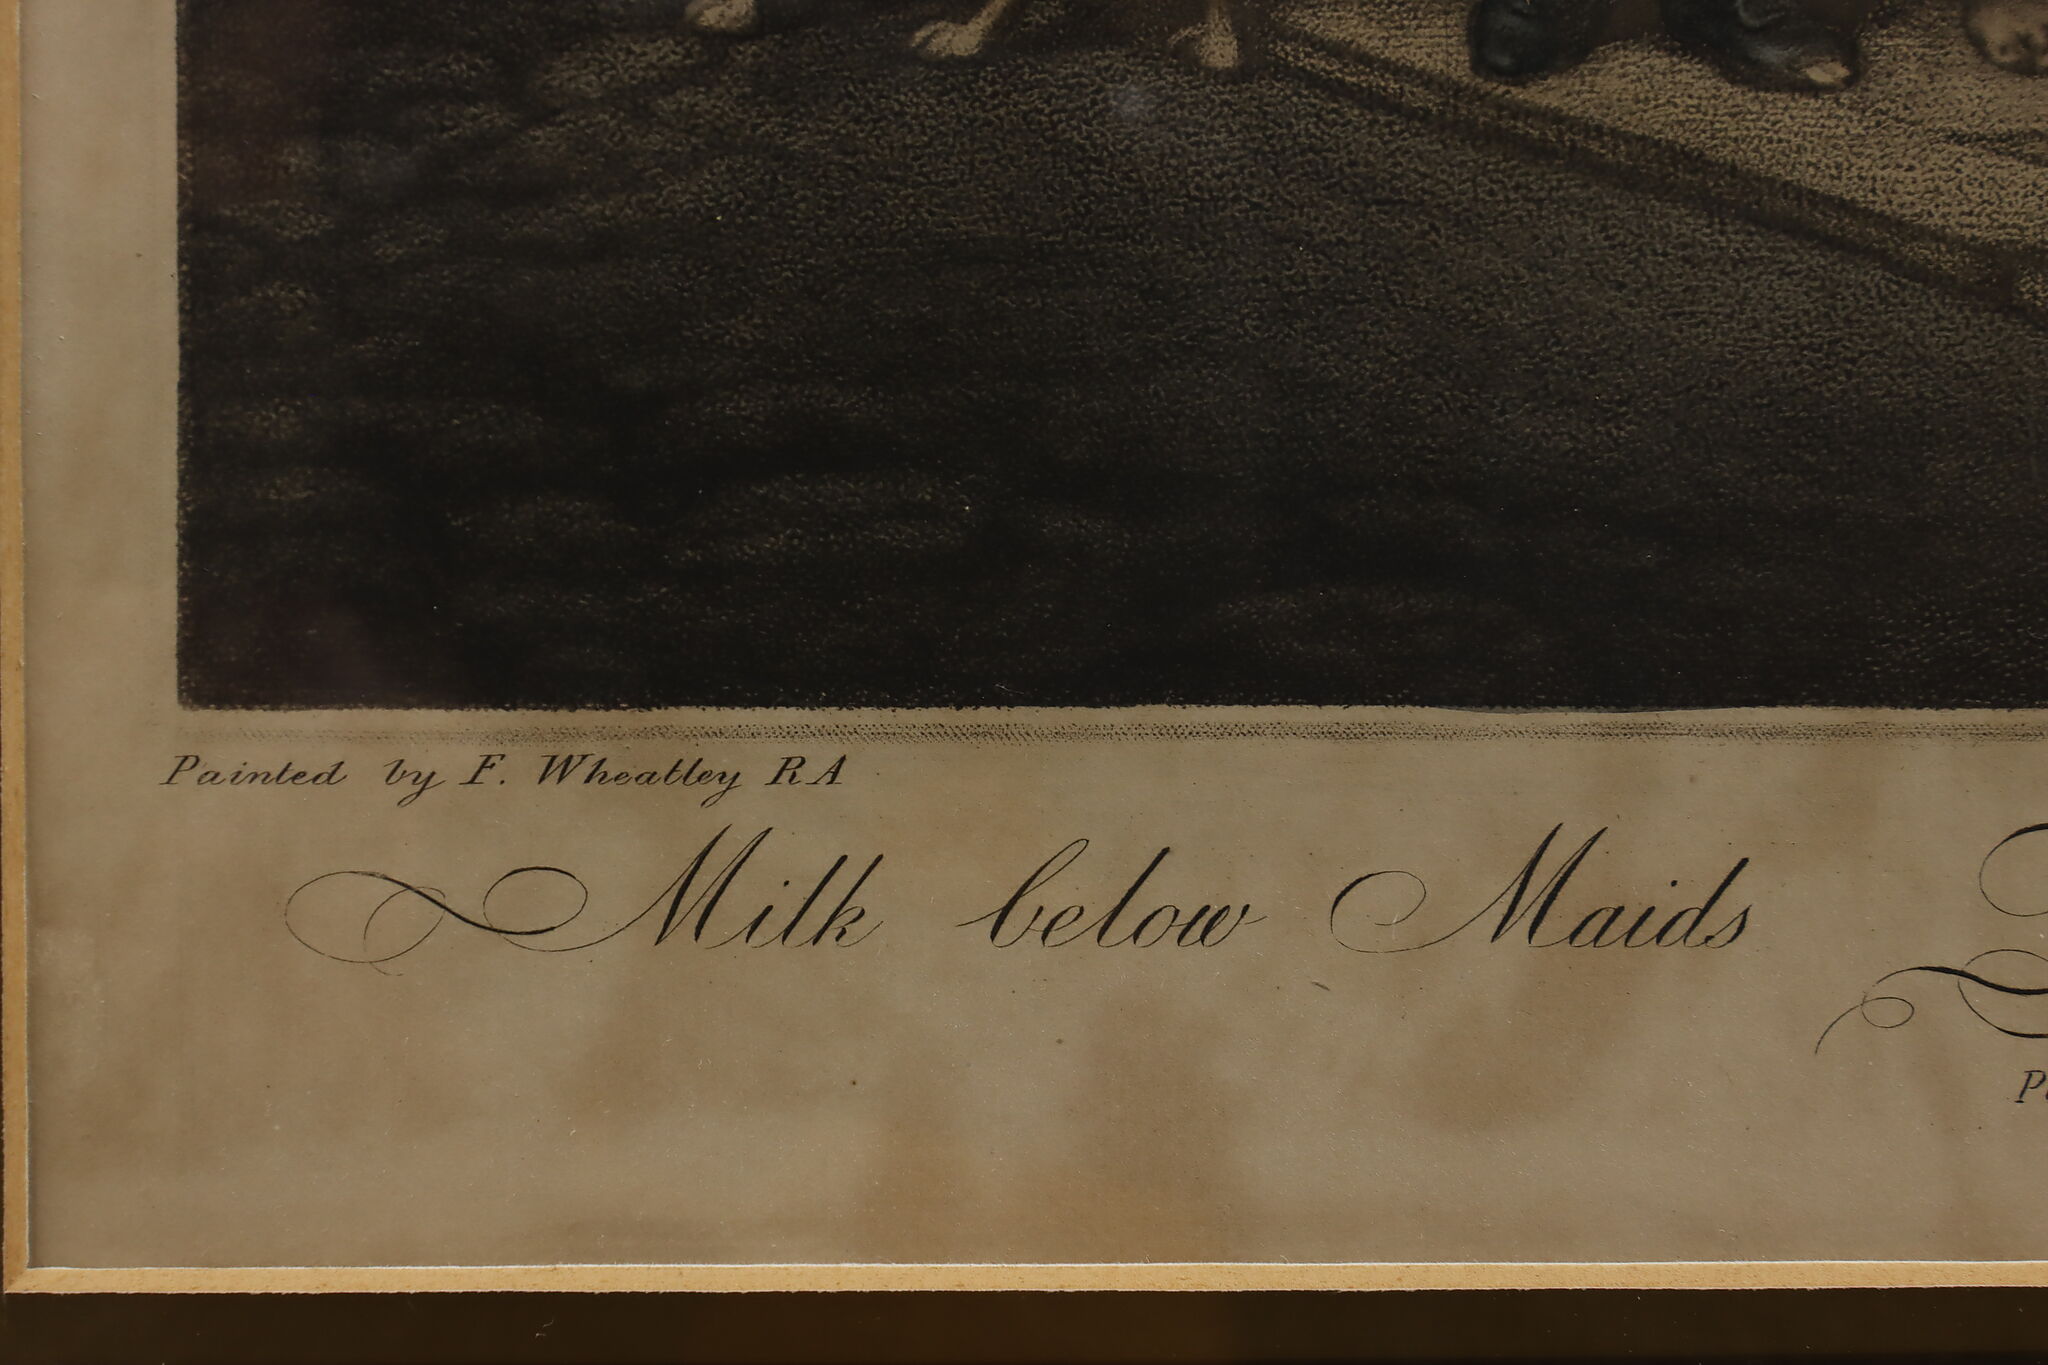 Painted by F. Wheatley RA
Milk below Maids